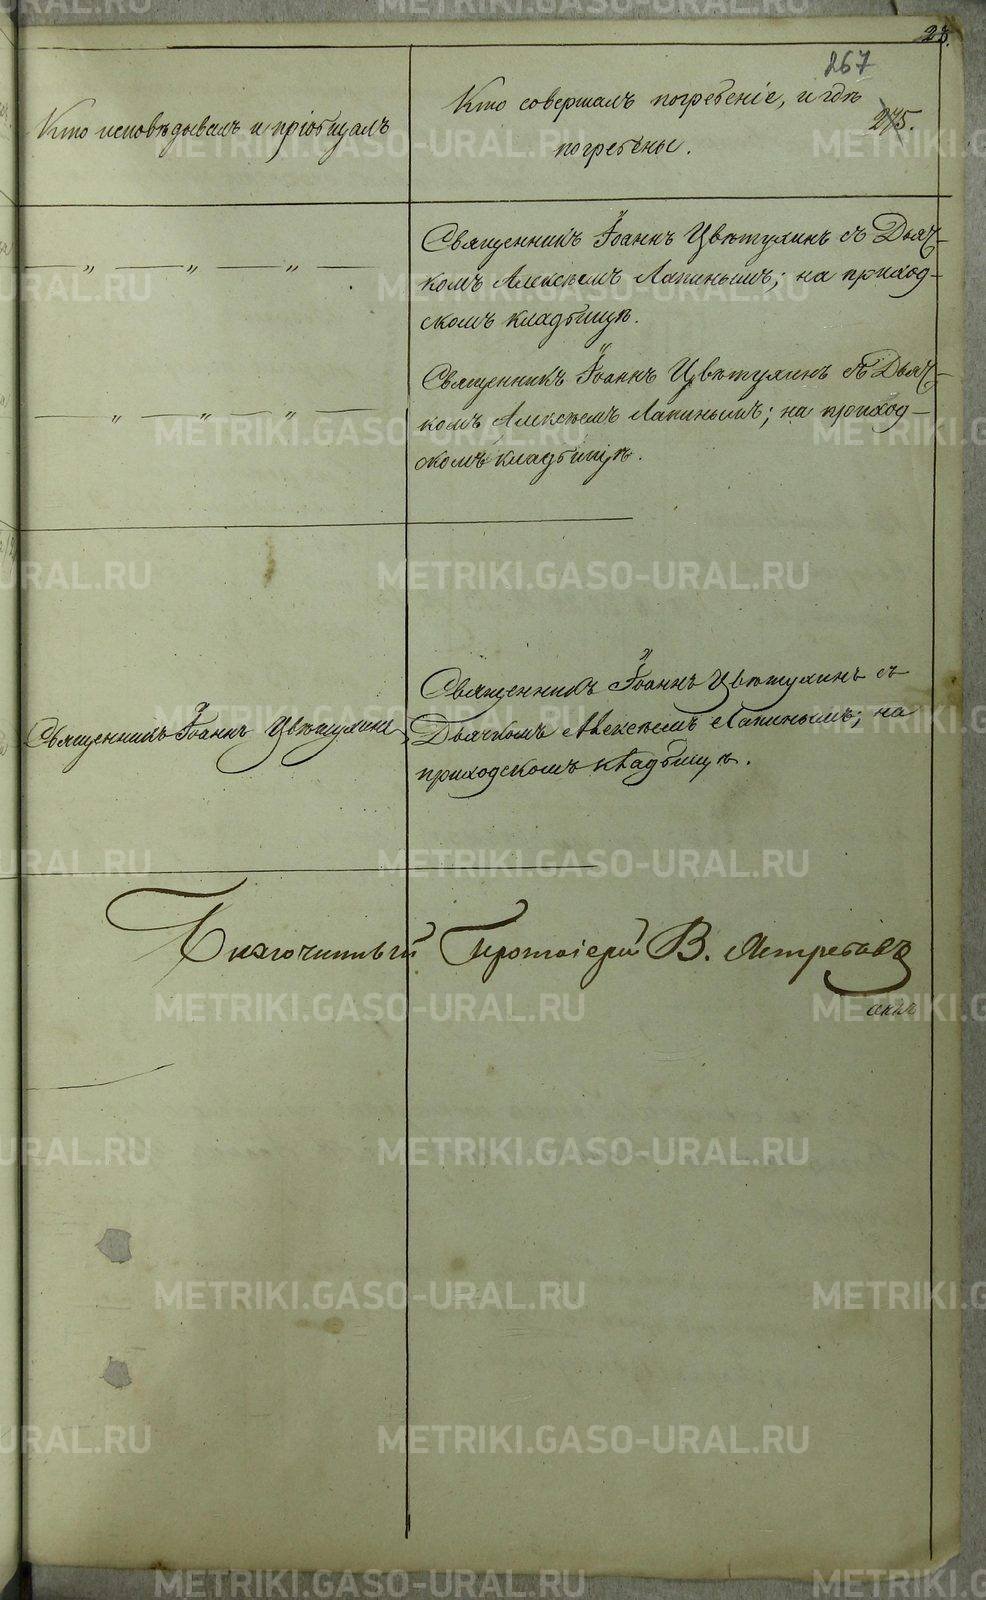 28.
267
275.
Кто исповѣдывалъ и пріобщалъ
Кто совершалъ погребеніе, и гдѣ
погребены.
— „ — „ — „ —
Священникъ Іоаннъ Цвѣтухинъ съ Дьяч-
комъ Алексѣемъ Лапинымъ; на приход-
скомъ кладбищѣ.
— „ — „ — „ —
Священникъ Іоаннъ Цвѣтухинъ съ Дьяч-
комъ Алексѣемъ Лапинымъ; на приход-
скомъ кладбищѣ.
Священникъ Іоаннъ Цвѣтухинъ
Священникъ Іоаннъ Цвѣтухинъ съ
Дьячкомъ Алексѣемъ Лапинымъ; на
приходскомъ кладбищѣ.
Благочинный Протоіерей В. Ястребовъ
METRIKI.GASO-URAL.RU